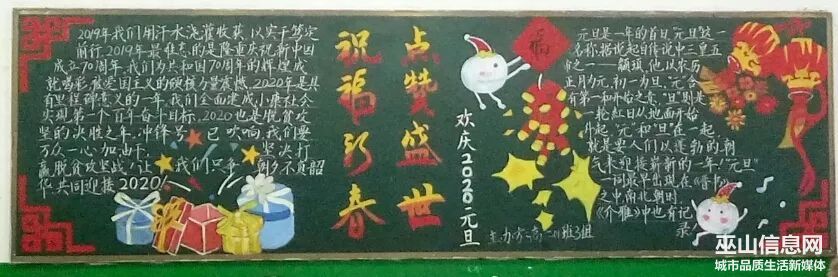 2019年我们用汗水浇灌收获,以实干笃定
前行。2019年最难忘的是隆重庆祝新中国
成立70周年,我们为共和国70周年的辉煌成
就喝彩,被爱国主义的硬核力量震憾。2020年是具
有里程碑意义的一年,我们全面建成小康社会
实现第一个百年奋斗目标。2020也是脱贫攻
坚的决胜之年,冲锋号已吹响,我们要
万众一心加油干,坚决打
赢脱贫攻坚战!让我们只争朝夕不负韶
华共同迎接2020!
祝福新春
点赞盛世
欢庆2020·元旦
主办方:高二
班3组
福
元旦是一年的首日,“元旦”这一
名称,据说起自传说中三皇五
帝之一——颛顼,他以农历
正月为元,初一为旦。“元”含
有第一和开始之意,“旦”则是
一轮红日从地面开始
升起,“元”和“旦”在一起,
就是要人们以蓬勃的朝
气来迎接崭新的一年!“元旦”
一词最早出现在《晋书》
之中南北朝时
《介雅》中也有记
录!
巫山信息网
城市品质生活新媒体